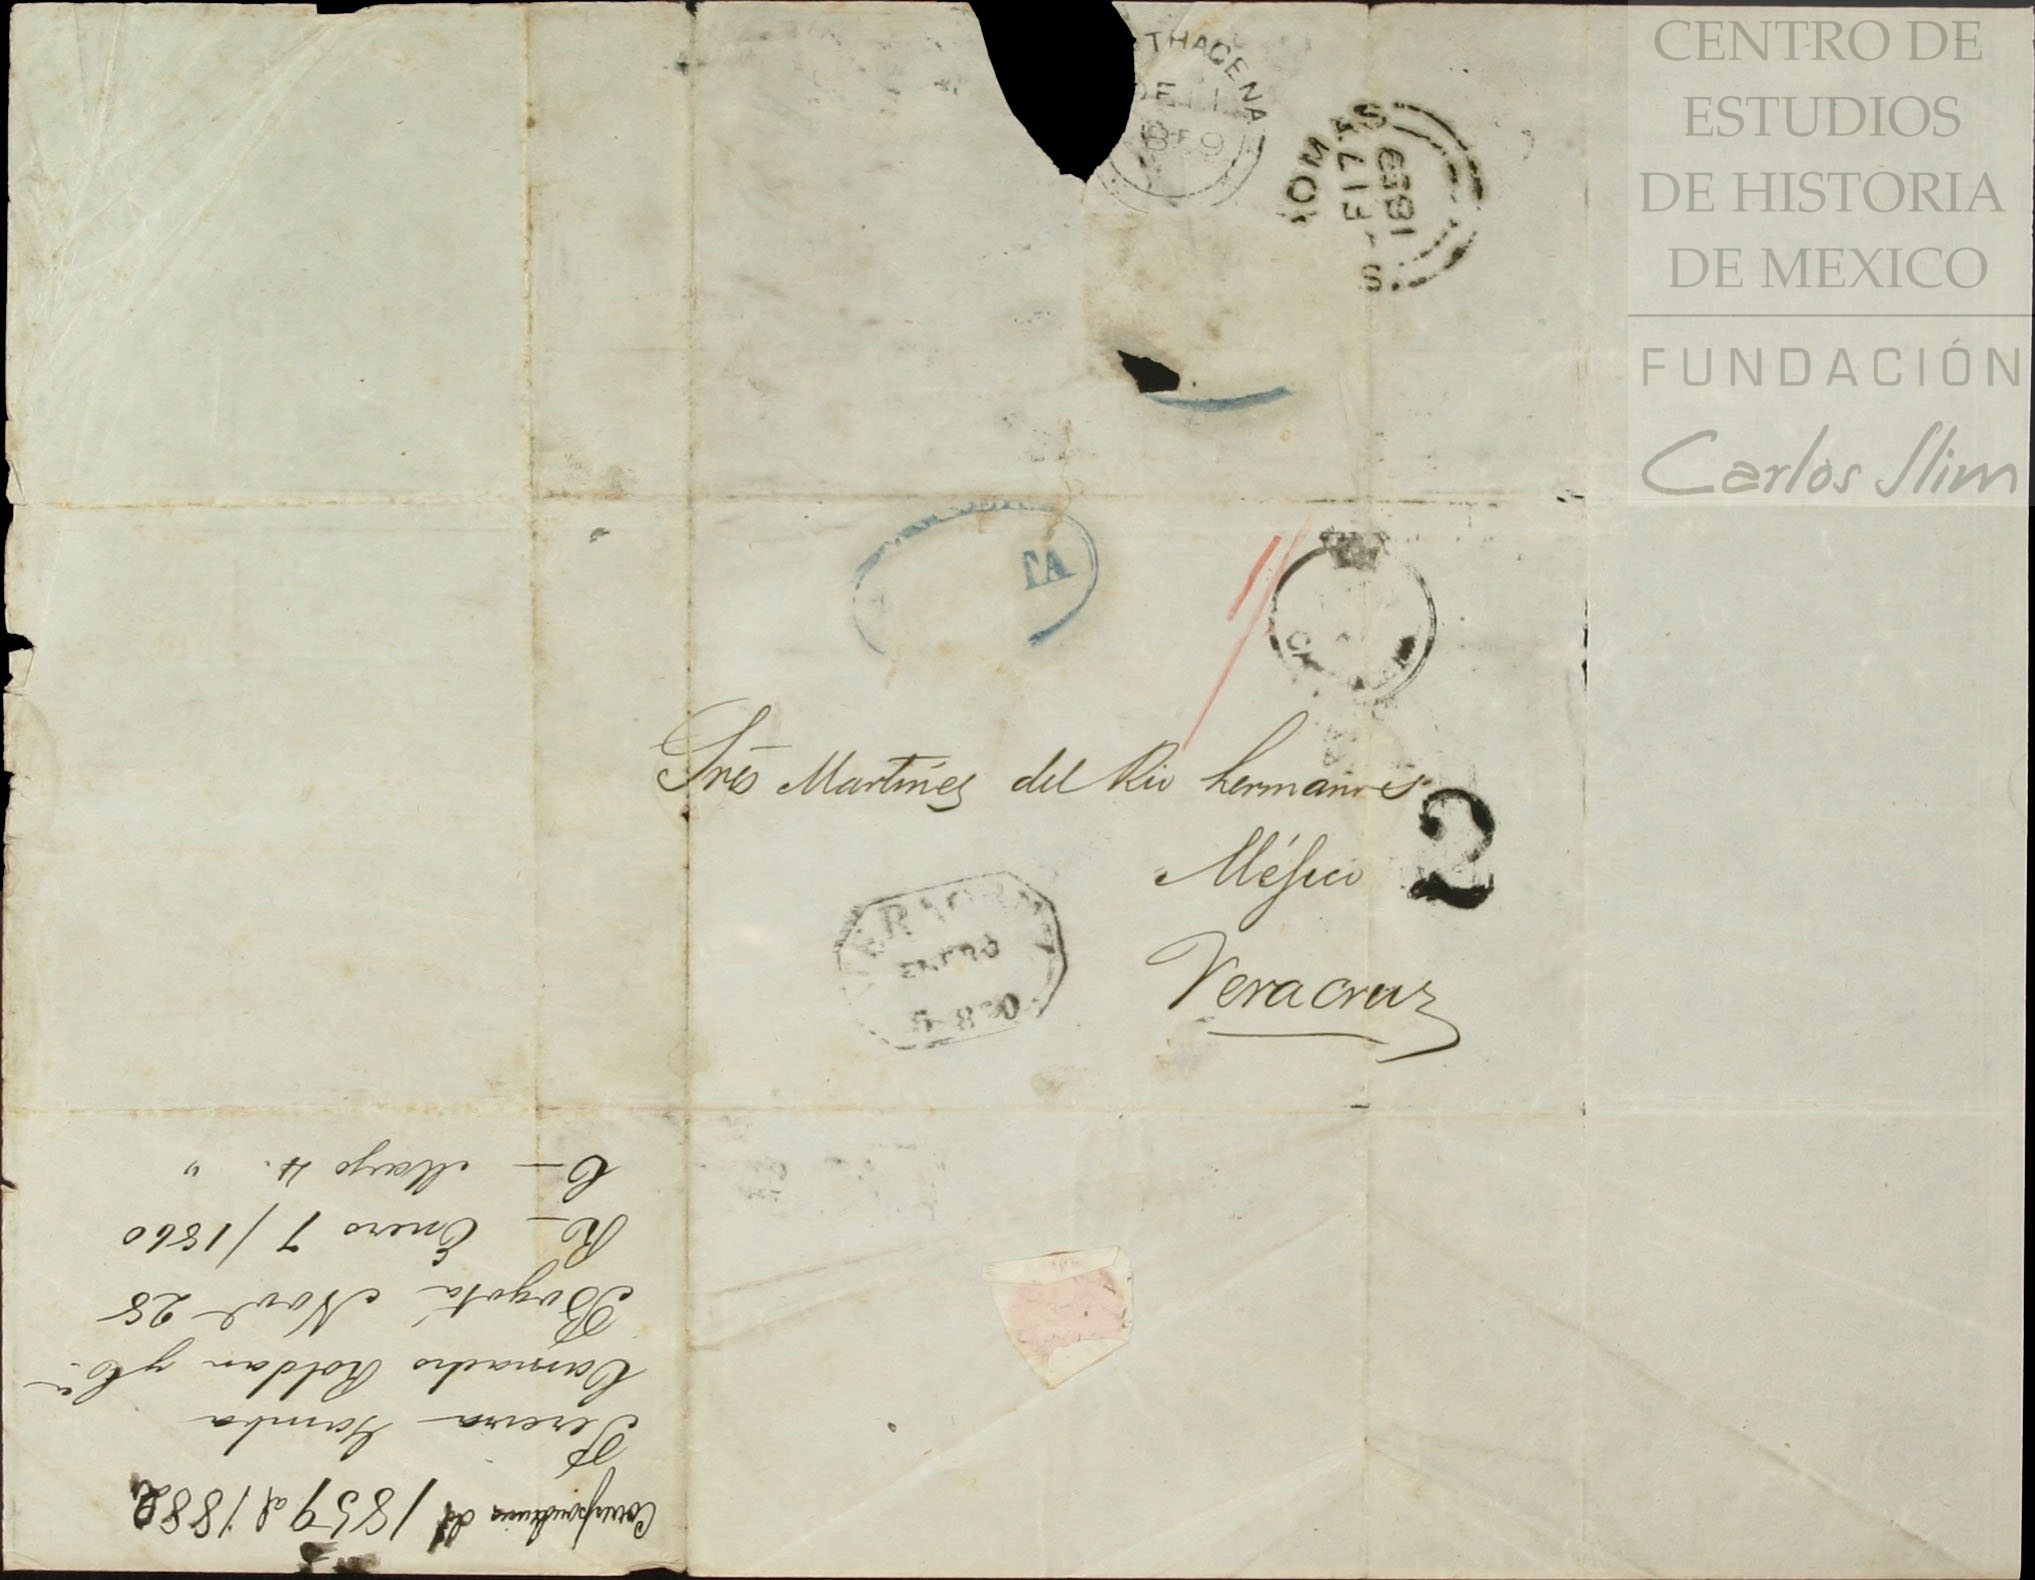 CENTRO DE
ESTUDIOS
DE HISTORIA
DE MEXICO
FUNDACIÓN
Carlos Slim
THAGENA
DE 11
1859
ST THOMAS
DE 17
1859
TA
Sres Martinez del Rio hermanos
Méjico
2
Veracruz
VERACRUZ
ENERO
5 860
Correspondencia del 1859 al 1882
Pereira Gamba
Camacho Roldan y Ca.
Bogotá Nove 28
R— Enero 7/1860
C— Mayo 4. "